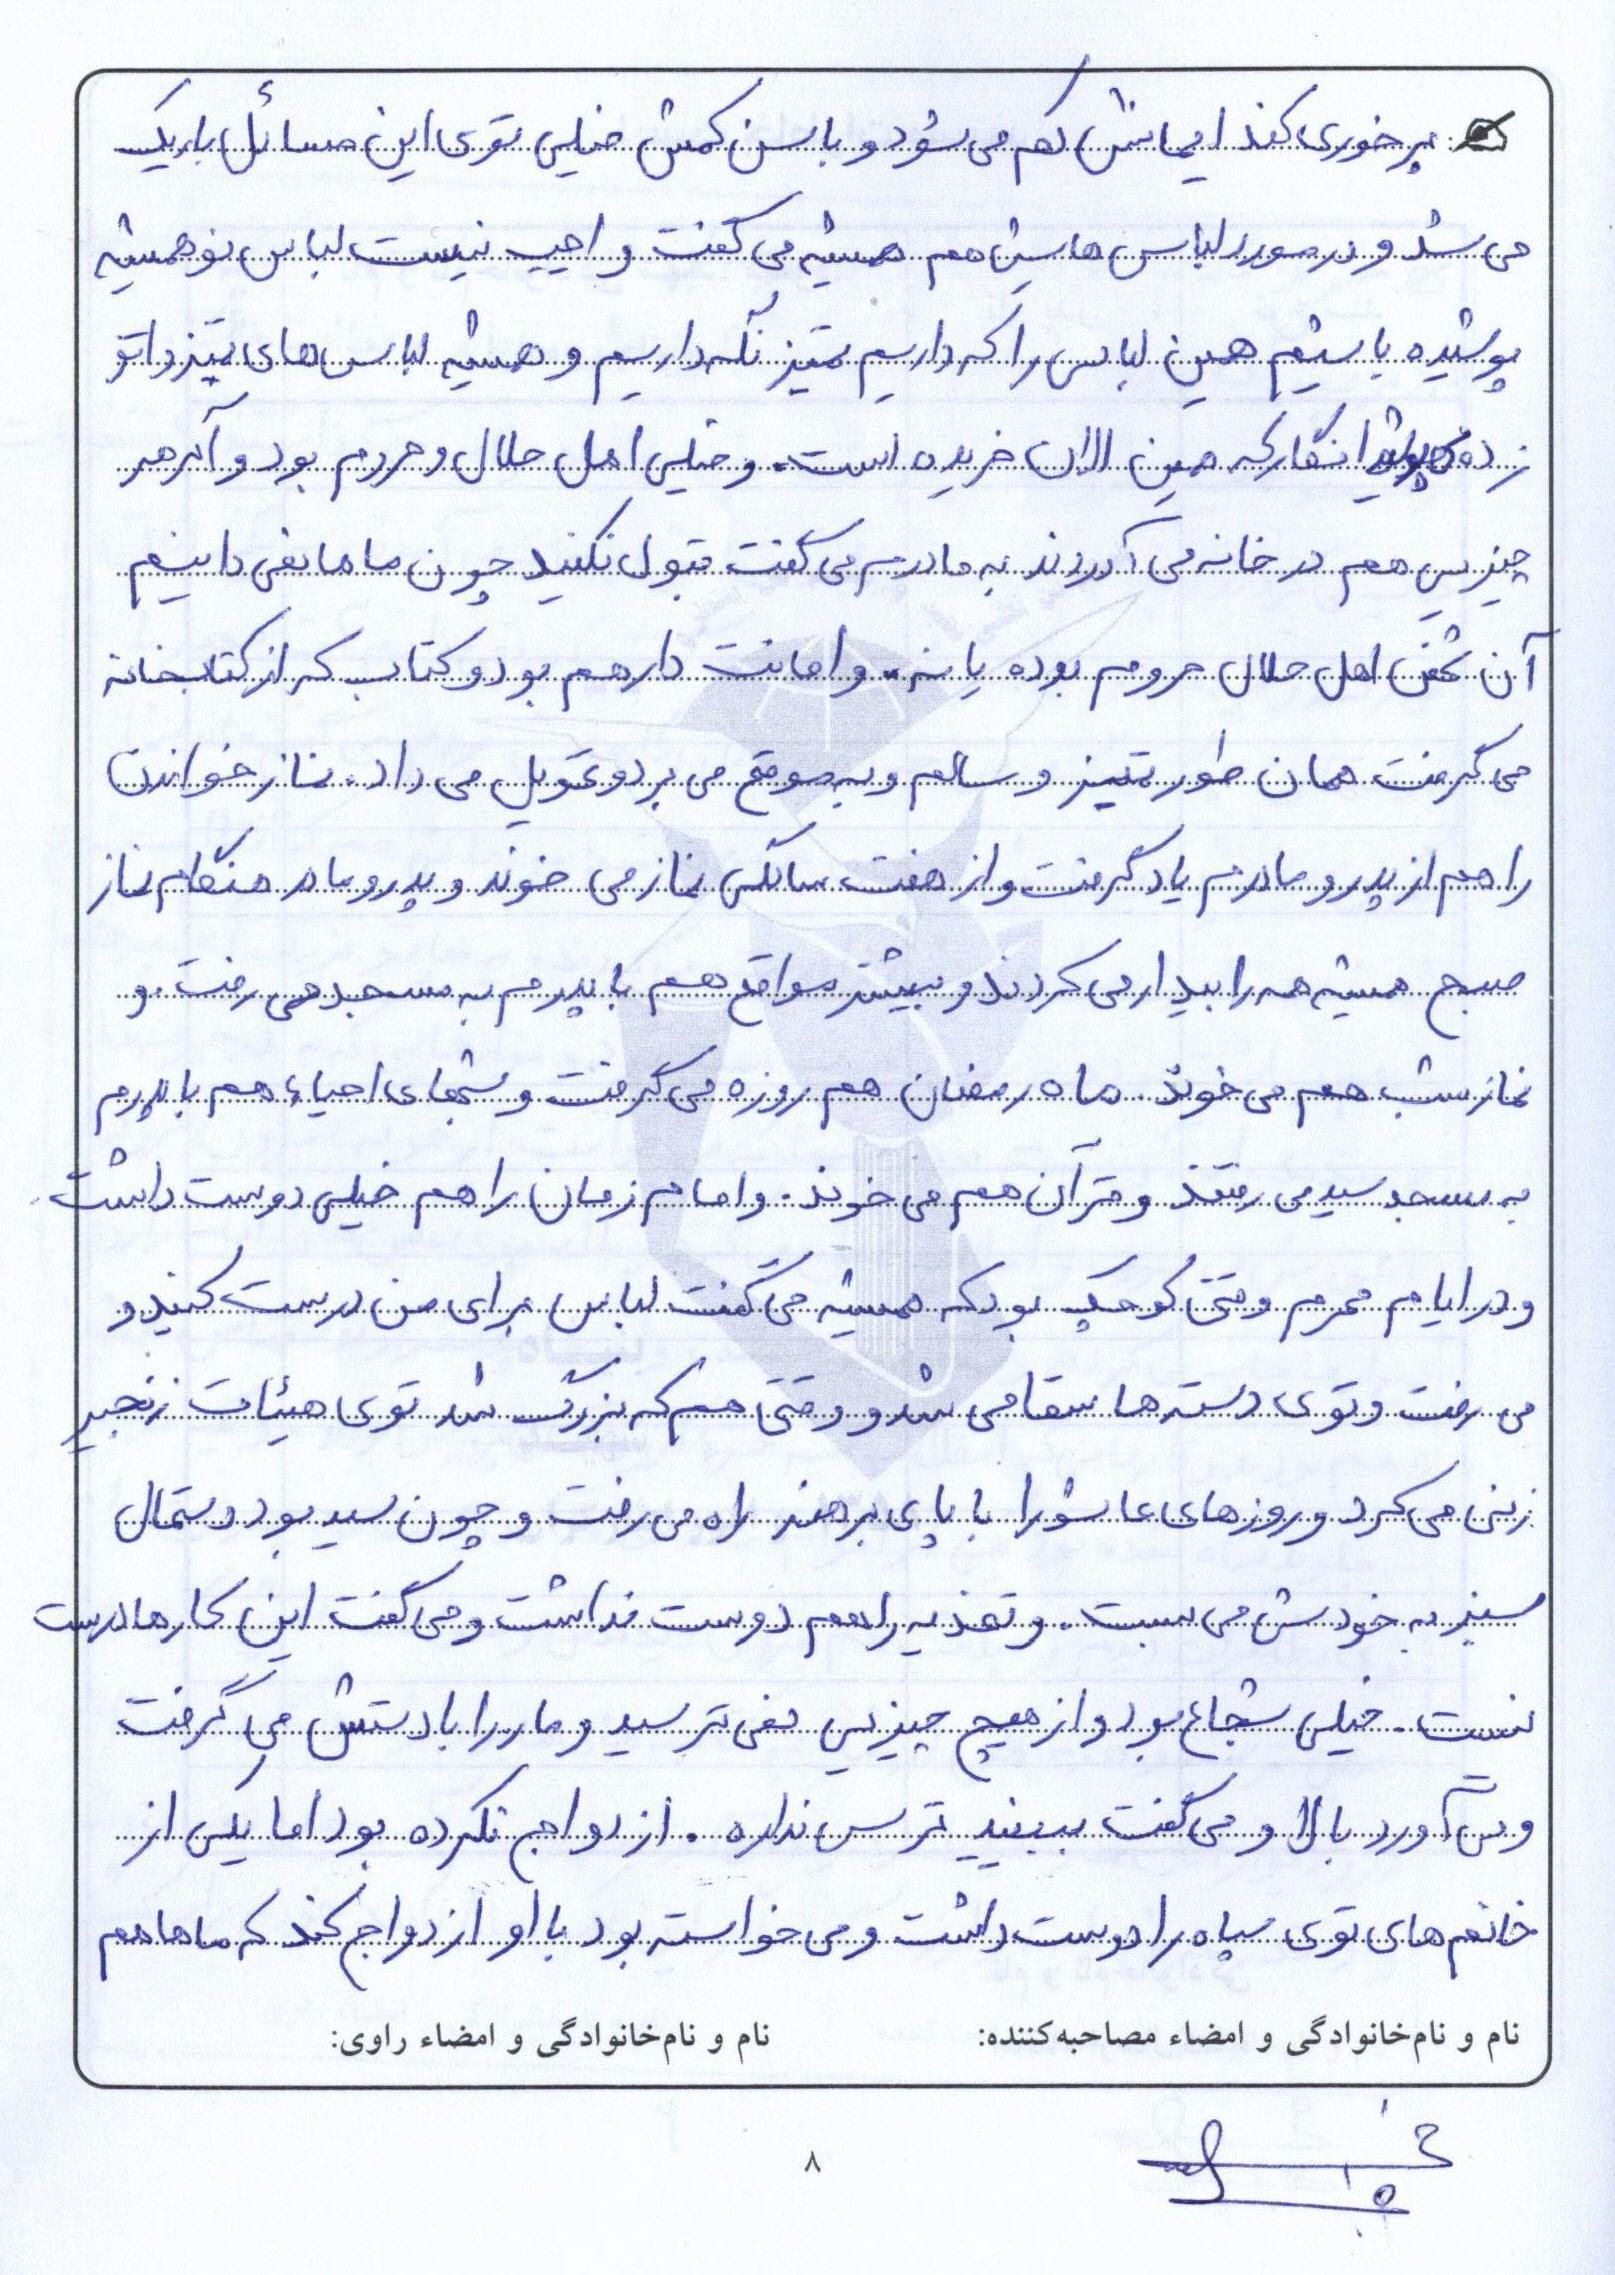 پرخوری کند ایمانش کم می شود و با سن کمش خیلی توی این مسائل باریک
می شد و در مورد لباس هایش هم همیشه می گفت واجب نیست لباس نو همیشه
پوشیده باشیم همین لباس را که داریم تمیز نگه داریم و همیشه لباس های تمیز و اتو
زده انگار که همین الان خریده است. و خیلی اهل حلال و حروم بود و اگر هر
چیزیی هم در خانه می آوردند به مادرم می گفت قبول نکنید چون ماها نمی دانیم
آن شخص اهل حلال حروم بوده یا نه. و امانت دار هم بود و کتاب که از کتابخانه
می گرفت همان طور تمیز و سالم و به موقع می برد و تحویل می داد. نماز خواندن
را هم از پدر و مادرم یاد گرفت و از هفت سالگی نماز می خوند و پدر و مادر هنگام نماز
صبح همیشه همه را بیدار می کردند و بیشتر مواقع هم با پدرم به مسجد می رفت. و
نماز شب هم می خوند. ماه رمضان هم روزه می گرفت و شبهای احیاء هم با پدرم
به مسجد سید می رفتند و قرآن هم می خوند. و امام زمان را هم خیلی دوست داشت.
و در ایام محرم وقتی کوچک بود که همیشه می گفت لباس برای من درست کنید و
می رفت و توی دسته ها سقا می شد و وقتی هم که بزرگ شد توی هیئات زنجیر
زنی می کرد و روزهای عاشورا با پای برهنه راه می رفت و چون سید بود دستمال
سبز به خودش می بست. و تعذیه را هم دوست نداشت و می گفت این کارها درست
نیست. خیلی شجاع بود و از هیچ چیزیی نمی ترسید و مار را با دستش می گرفت
و می آورد بالا و می گفت ببینید ترس نداره. ازدواج نکرده بود اما یکی از
خانم های توی سپاه را دوست داشت و می خواسته بود با او ازدواج کند که ماها هم
نام و نام خانوادگی و امضاء مصاحبه کننده: نام و نام خانوادگی و امضاء راوی:
۸